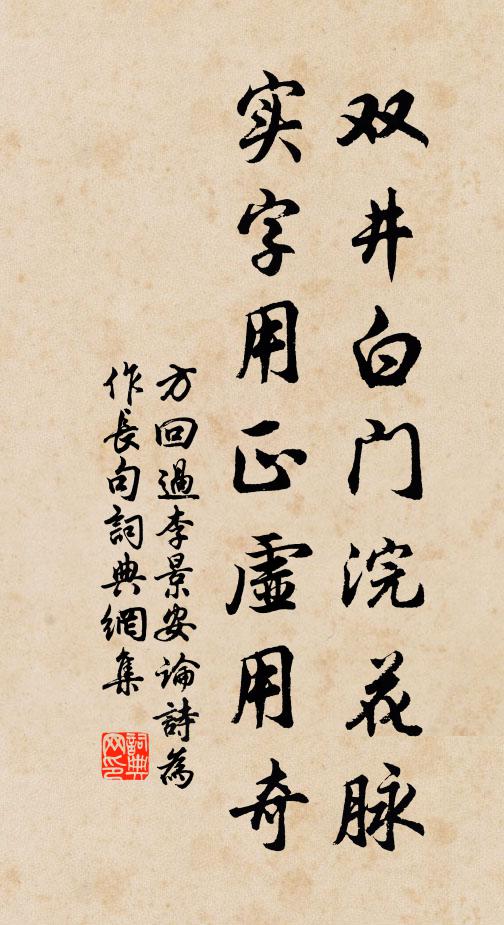 双井白门浣花脉
实字用正虚用奇
方回過李景安論詩為
作長句詞典網集
詞典
网印